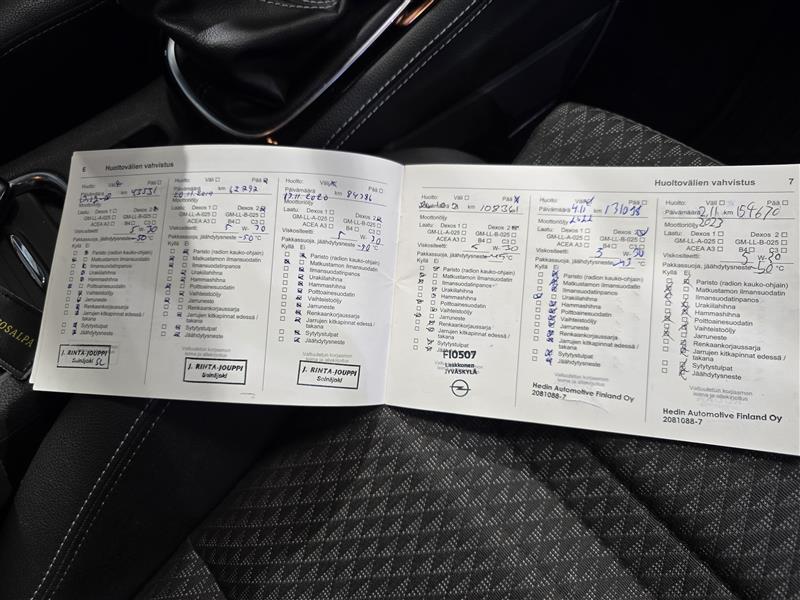 6 Huoltovälien vahvistus
Huolto: Väli Pää
Päivämäärä km 43551
Moottoriöljy
Laatu: Dexos 1 Dexos 2
GM-LL-A-025 GM-LL-B-025
ACEA A3 B4 C3
Viskositeetti: 5 W- 30
Pakkassuoja, jäähdytysneste -50°C
Kyllä Ei
Paristo (radion kauko-ohjain)
Matkustamon ilmansuodatin
Ilmansuodatinpanos
Urakiilahihna
Hammashihna
Polttoainesuodatin
Vaihteistoöljy
Jarruneste
Renkaankorjaussarja
Jarrujen kitkapinnat edessä /
takana
Sytytystulpat
Jäähdytysneste
J. RINTA-JOUPPI
Seinäjoki
Huolto: Väli Pää
Päivämäärä km
20.11.2019
Moottoriöljy
Laatu: Dexos 1 Dexos 2
GM-LL-A-025 GM-LL-B-025
ACEA A3 B4 C3
Viskositeetti: 5 W- 30
Pakkassuoja, jäähdytysneste -50°C
Kyllä Ei
Paristo (radion kauko-ohjain)
Matkustamon ilmansuodatin
Ilmansuodatinpanos
Urakiilahihna
Hammashihna
Polttoainesuodatin
Vaihteistoöljy
Jarruneste
Renkaankorjaussarja
Jarrujen kitkapinnat edessä /
takana
Sytytystulpat
Jäähdytysneste
J. RINTA-JOUPPI
Seinäjoki
Huolto: Väli Pää
Päivämäärä km 84386
17.11.2020
Moottoriöljy
Laatu: Dexos 1 Dexos 2
GM-LL-A-025 GM-LL-B-025
ACEA A3 B4 C3
Viskositeetti: 5 W- 30
Pakkassuoja, jäähdytysneste °C
Kyllä Ei
Paristo (radion kauko-ohjain)
Matkustamon ilmansuodatin
Ilmansuodatinpanos
Urakiilahihna
Hammashihna
Polttoainesuodatin
Vaihteistoöljy
Jarruneste
Renkaankorjaussarja
Jarrujen kitkapinnat edessä /
takana
Sytytystulpat
Jäähdytysneste
Valtuutetun korjaamon
leima ja allekirjoitus
J. RINTA-JOUPPI
Seinäjoki
Huoltovälien vahvistus 7
Huolto: Väli Pää
km 108361
Moottoriöljy
Laatu: Dexos 1 Dexos 2
GM-LL-A-025 GM-LL-B-025
ACEA A3 B4 C3
Viskositeetti: 5 W- 30
Pakkassuoja, jäähdytysneste °C
Kyllä Ei
Paristo (radion kauko-ohjain)
Matkustamon ilmansuodatin
Ilmansuodatinpanos
Urakiilahihna
Hammashihna
Polttoainesuodatin
Vaihteistoöljy
Jarruneste
Renkaankorjaussarja
Jarrujen kitkapinnat edessä /
takana
Sytytystulpat
Jäähdytysneste
FI0507
Laakkonen
JYVÄSKYLÄ
Huolto: Väli Pää
Päivämäärä km
4.11 131098
Moottoriöljy 2022
Laatu: Dexos 1 Dexos 2
GM-LL-A-025 GM-LL-B-025
ACEA A3 B4 C3
Viskositeetti: 5 W- 30
Pakkassuoja, jäähdytysneste °C
Kyllä Ei
Paristo (radion kauko-ohjain)
Matkustamon ilmansuodatin
Ilmansuodatinpanos
Urakiilahihna
Hammashihna
Polttoainesuodatin
Vaihteistoöljy
Jarruneste
Renkaankorjaussarja
Jarrujen kitkapinnat edessä /
takana
Sytytystulpat
Jäähdytysneste
Valtuutetun korjaamon
leima ja allekirjoitus
Hedin Automotive Finland Oy
2081088-7
Huolto: Väli Pää
Päivämäärä 2.11 km 154670
Moottoriöljy 2023
Laatu: Dexos 1 Dexos 2
GM-LL-A-025 GM-LL-B-025
ACEA A3 B4 C3
Viskositeetti: 5 W- 30
Pakkassuoja, jäähdytysneste °C
Kyllä Ei
Paristo (radion kauko-ohjain)
Matkustamon ilmansuodatin
Ilmansuodatinpanos
Urakiilahihna
Hammashihna
Polttoainesuodatin
Vaihteistoöljy
Jarruneste
Renkaankorjaussarja
Jarrujen kitkapinnat edessä /
takana
Sytytystulpat
Jäähdytysneste
Valtuutetun korjaamon
leima ja allekirjoitus
Hedin Automotive Finland Oy
2081088-7
OSALPA